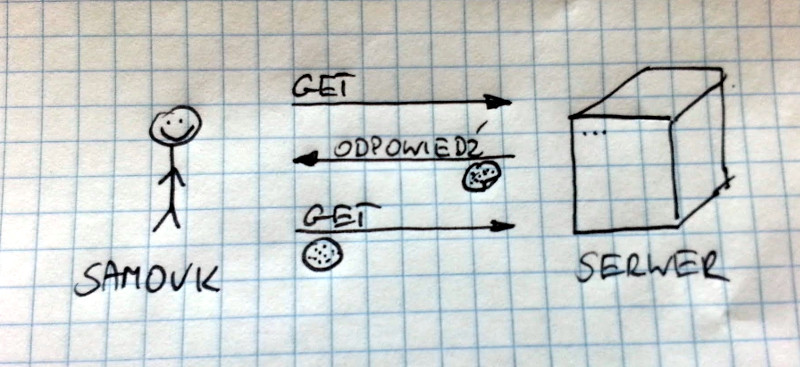 GET
ODPOWIEDŹ
GET
SAMOUK
SERWER